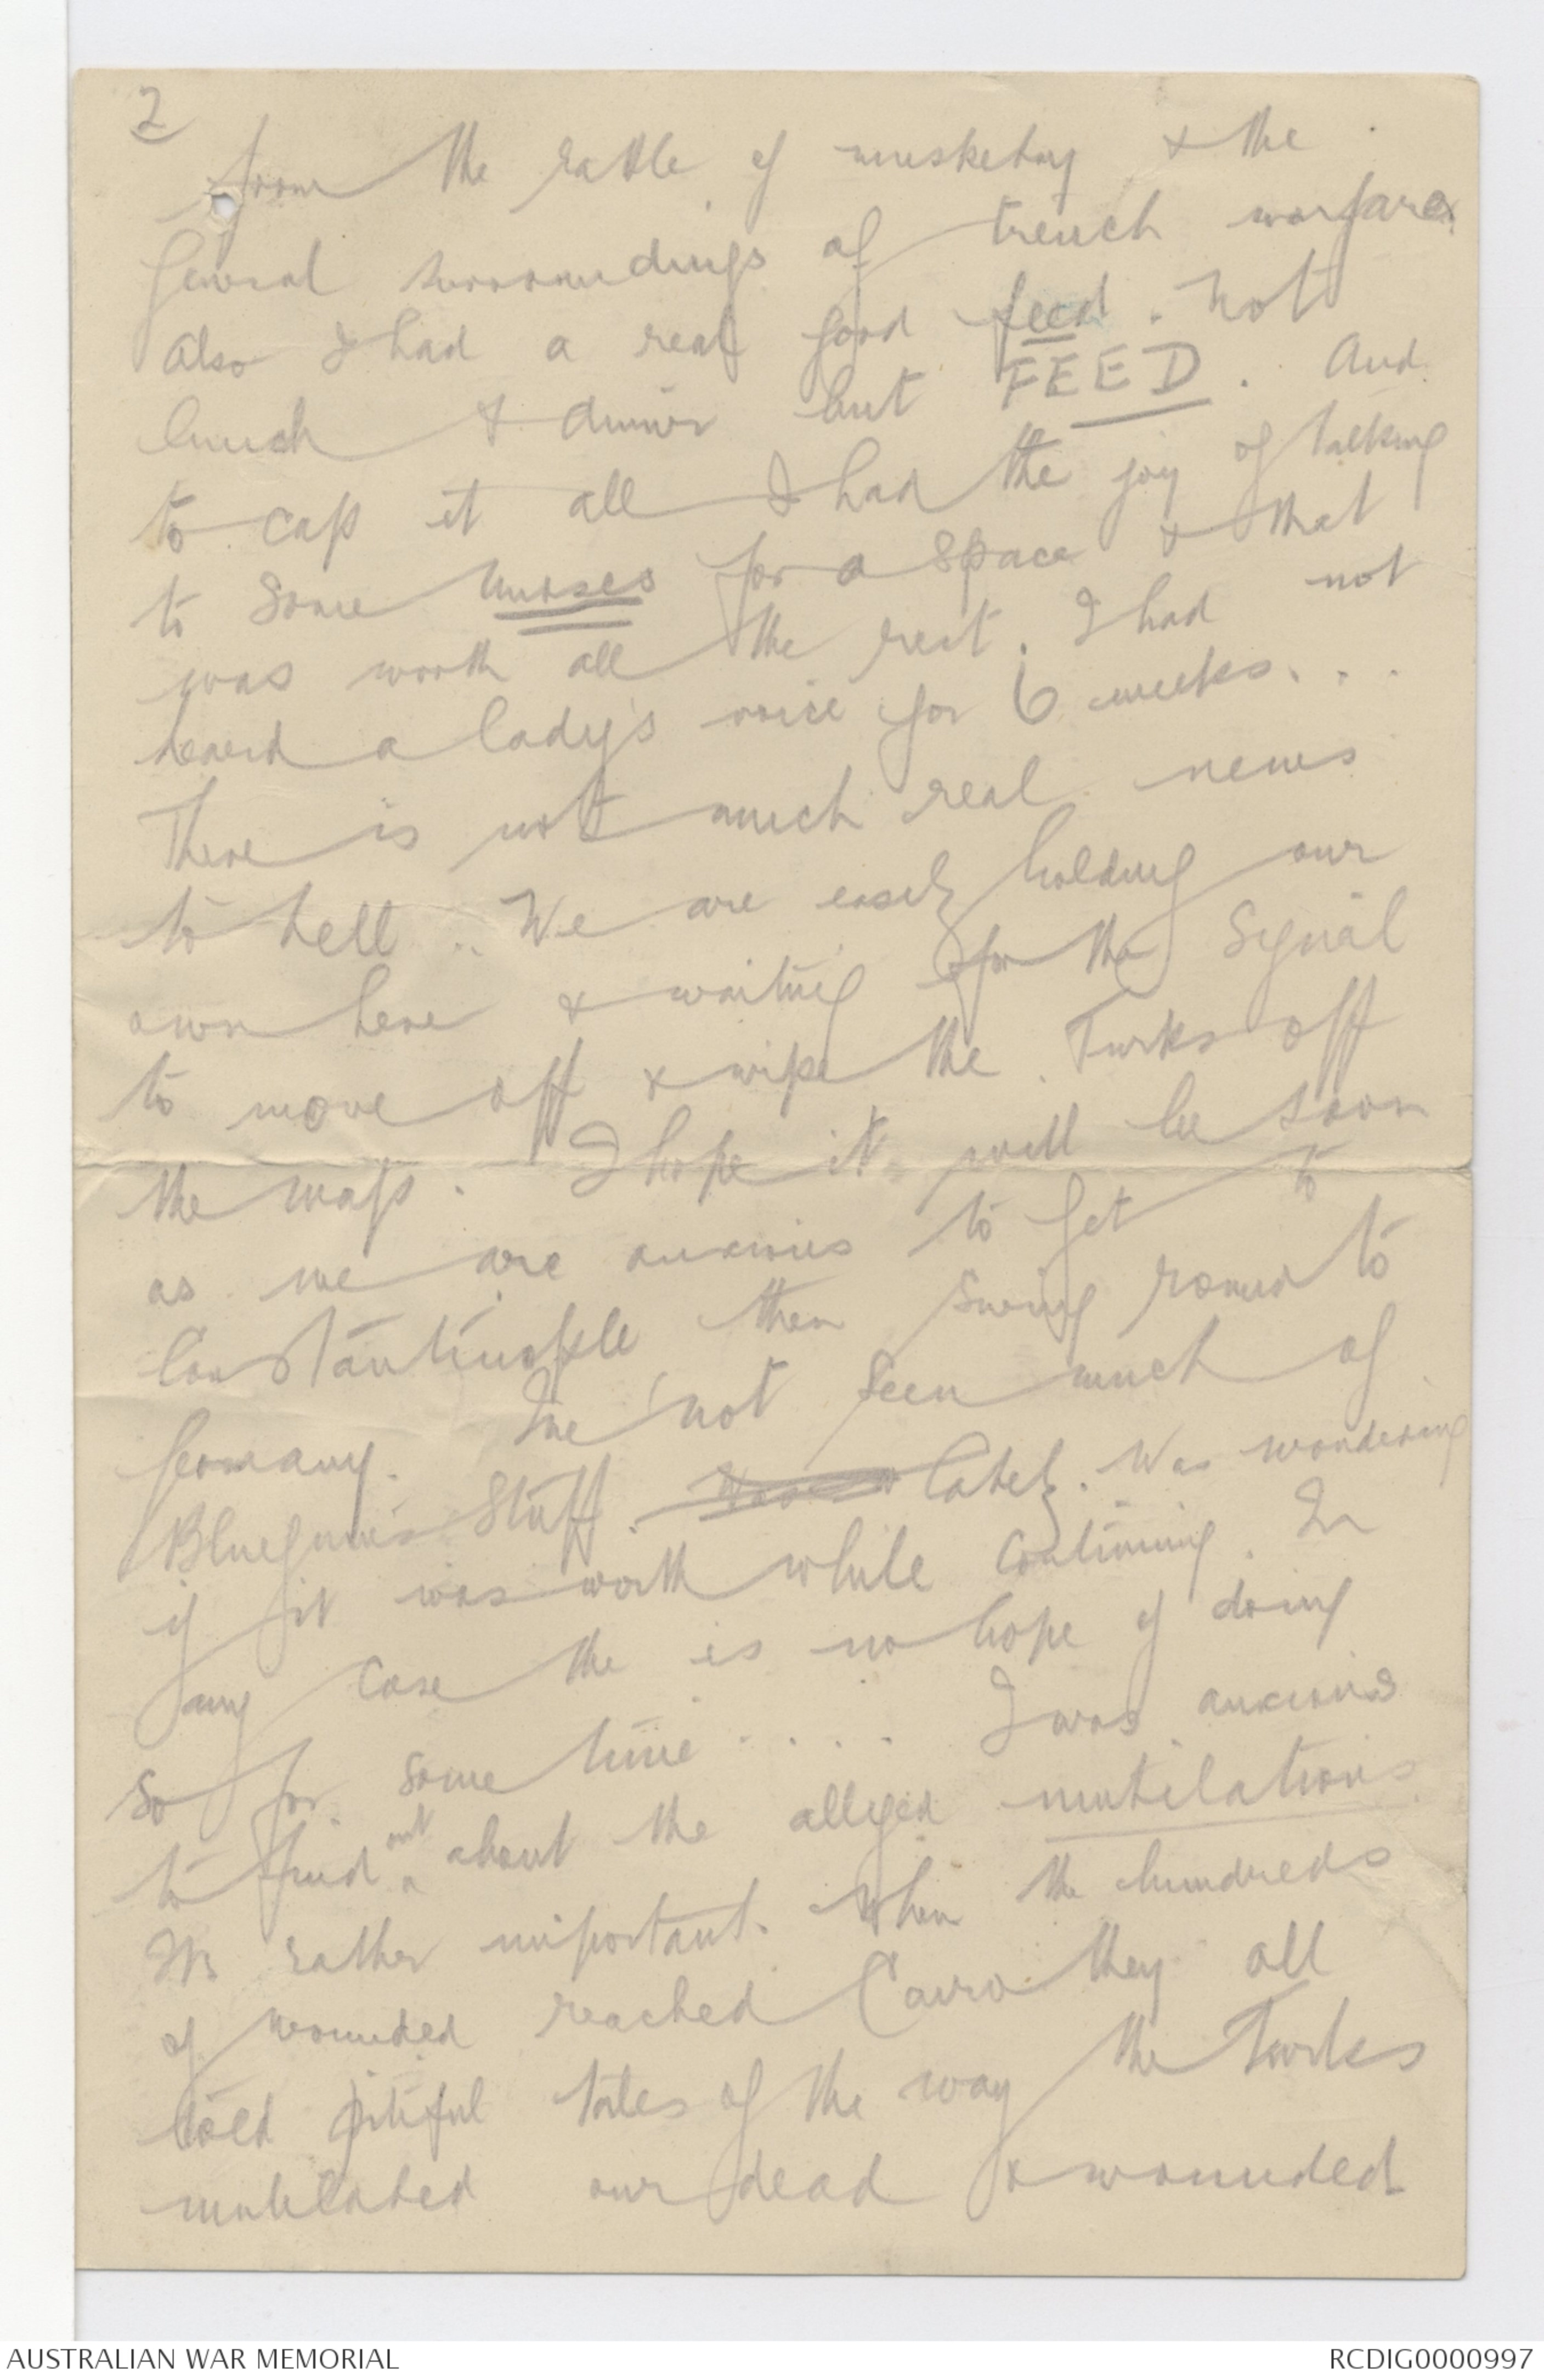 2
from the rattle of musketry & the
general surroundings of trench warfare
Also I had a real good feed. Not
lunch & dinner but FEED. And
to cap it all I had the joy of talking
to some nurses for a space & that
was worth all the rest. I had not
heard a lady's voice for 6 weeks. . .
There is not much real news
to tell .. We are easily holding our
own here & waiting for the signal
to move off & wipe the Turks off
the map. I hope it will be soon
as we are anxious to get to
Constantinople then swing round to
Germany. I've not seen much of
Bluegum's stuff. lately. Was wondering
if it was worth while continuing. In
any case the is no hope of doing
so for some time . . . . I was anxious
to find out about the alleged mutilations
It's rather important. When the hundreds
of wounded reached Cairo they all
told pitiful tales of the way the Turks
mutilated our dead & wounded
AUSTRALIAN WAR MEMORIAL
RCDIG0000997